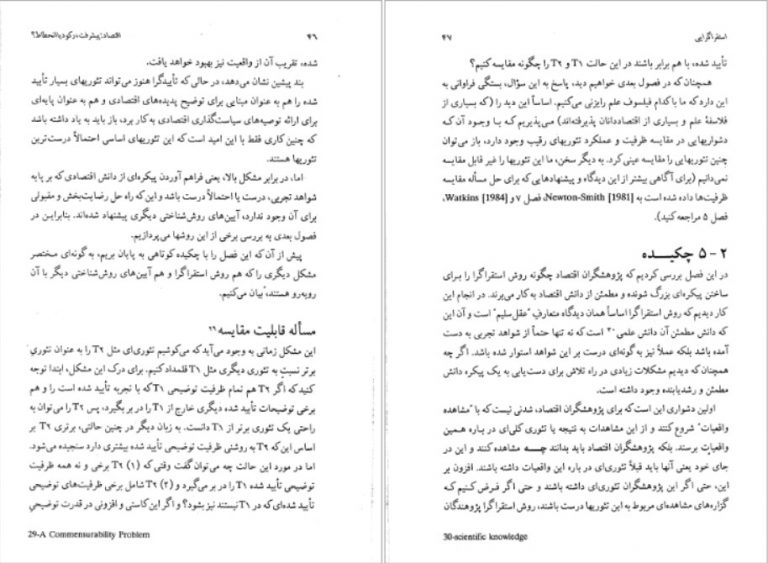 ۴۶
اقتصاد: پیشرفت، رکود یا انحطاط؟
شده، تقریب آن از واقعیت نیز بهبود خواهد یافت.
بند پیشین نشان می‌دهد، در حالی که تأییدگرا هنوز می‌تواند تئوریهای بسیار تأیید
شده را هم به عنوان مبنایی برای توضیح پدیده‌های اقتصادی و هم به عنوان پایه‌ای
برای ارائه توصیه‌های سیاست‌گذاری اقتصادی به کار برد، باز باید به یاد داشته باشد
که چنین کاری فقط با این امید است که این تئوریهای اساسی احتمالاً درست‌ترین
تئوریها هستند.
اما، در برابر مشکل بالا، یعنی فراهم آوردن پیکره‌ای از دانش اقتصادی که بر پایه
شواهد تجربی، درست یا احتمالاً درست باشد و این که راه حل رضایت‌بخش و مقبولی
برای آن وجود ندارد، آیین‌های روش‌شناختی دیگری پیشنهاد شده‌اند. بنابراین در
فصول بعدی به بررسی برخی از این روشها می‌پردازیم.
پیش از آن که این فصل را با چکیده کوتاهی به پایان بریم، به گونه‌ای مختصر
مشکل دیگری را که هم روش استقراگرا و هم آیین‌های روش‌شناختی دیگر با آن
روبه‌رو هستند، بیان می‌کنیم.
مسأله قابلیت مقایسه ۲۹
این مشکل زمانی به وجود می‌آید که می‌کوشیم تئوری‌ای مثل T۲ را به عنوان تئوریِ
برتر نسبت به تئوری دیگری مثل T۱ قلمداد کنیم. برای درک این مشکل، ابتدا توجه
کنید که اگر T۲ هم تمام ظرفیت توضیحی T۱ که با تجربه تأیید شده است را و هم
برخی توضیحات تأیید شده دیگری خارج از T۱ را در بر بگیرد، پس T۲ را می‌توان به
راحتی یک تئوری برتر از T۱ دانست. به زبان دیگر در چنین حالتی، برتری T۲ بر
اساس این که T۲ به روشنی ظرفیت توضیحی تأیید شده بیشتری دارد سنجیده می‌شود.
اما در مورد این حالت چه می‌توان گفت وقتی که (۱) T۲ برخی و نه همه ظرفیت
توضیحی تأیید شده T۱ را در بر می‌گیرد و (۲) T۲ شامل برخی ظرفیت‌های توضیحی
تأیید شده‌ای که در T۱ نیستند نیز بشود؟ و اگر این کاستی و افزونی در قدرت توضیحیِ
29-A Commensurability Problem
استقراگرایی
۴۷
تأیید شده، با هم برابر باشند در این حالت T۱ و T۲ را چگونه مقایسه کنیم؟
همچنان که در فصول بعدی خواهیم دید، پاسخ به این سؤال، بستگی فراوانی به
این دارد که ما با کدام فیلسوف علم رایزنی می‌کنیم. اساساً این دید را (که بسیاری از
فلاسفهٔ علم و بسیاری از اقتصاددانان پذیرفته‌اند) می‌پذیریم که با وجود آن که
دشواریهایی در مقایسه ظرفیت و عملکرد تئوریهای رقیب وجود دارد، باز می‌توان
چنین تئوریهایی را مقایسه عینی کرد. به دیگر سخن، ما این تئوریها را غیر قابل مقایسه
نمی‌دانیم (برای آگاهی بیشتر از این دیدگاه و پیشنهادهایی که برای حل مسأله مقایسه
ظرفیت‌ها داده شده است به Newton-Smith [1981]، فصل ۷ و Watkins [1984]،
فصل ۵ مراجعه کنید).
۲ - ۵ چکیـــده
در این فصل بررسی کردیم که پژوهشگران اقتصاد چگونه روش استقراگرا را برای
ساختن پیکره‌ای بزرگ شونده و مطمئن از دانش اقتصاد به کار می‌برند. در انجام این
کار دیدیم که روش استقراگرا اساساً همان دیدگاه متعارفِ "عقل سلیم" است و آن این
که دانش مطمئن آن دانش علمی ۳۰ است که نه تنها حتماً از شواهد تجربی به دست
آمده باشد بلکه عملاً نیز به گونه‌ای درست بر این شواهد استوار شده باشد. اگر چه
همچنان که دیدیم مشکلات زیادی در راه تلاش برای دست‌یابی به یک پیکره دانش
مطمئن و رشدیابنده وجود داشته است.
اولین دشواری این است که برای پژوهشگران اقتصاد، شدنی نیست که با "مشاهده
واقعیات" شروع کنند و از این مشاهدات به نتیجه یا تئوری کلی‌ای در باره همین
واقعیات برسند. بلکه پژوهشگران اقتصاد باید بدانند چـــه مشاهده کنند و این در
جای خود یعنی آنها باید قبلاً تئوری‌ای در باره این واقعیات داشته باشند. افزون بر
این، حتی اگر این پژوهشگران تئوری‌ای داشته باشند و حتی اگر فـرض کـنیم کـه
گزاره‌های مشاهده‌ای مربوط به این تئوریها درست باشند، روش استقراگرا پژوهندگان
30-scientific knowledge